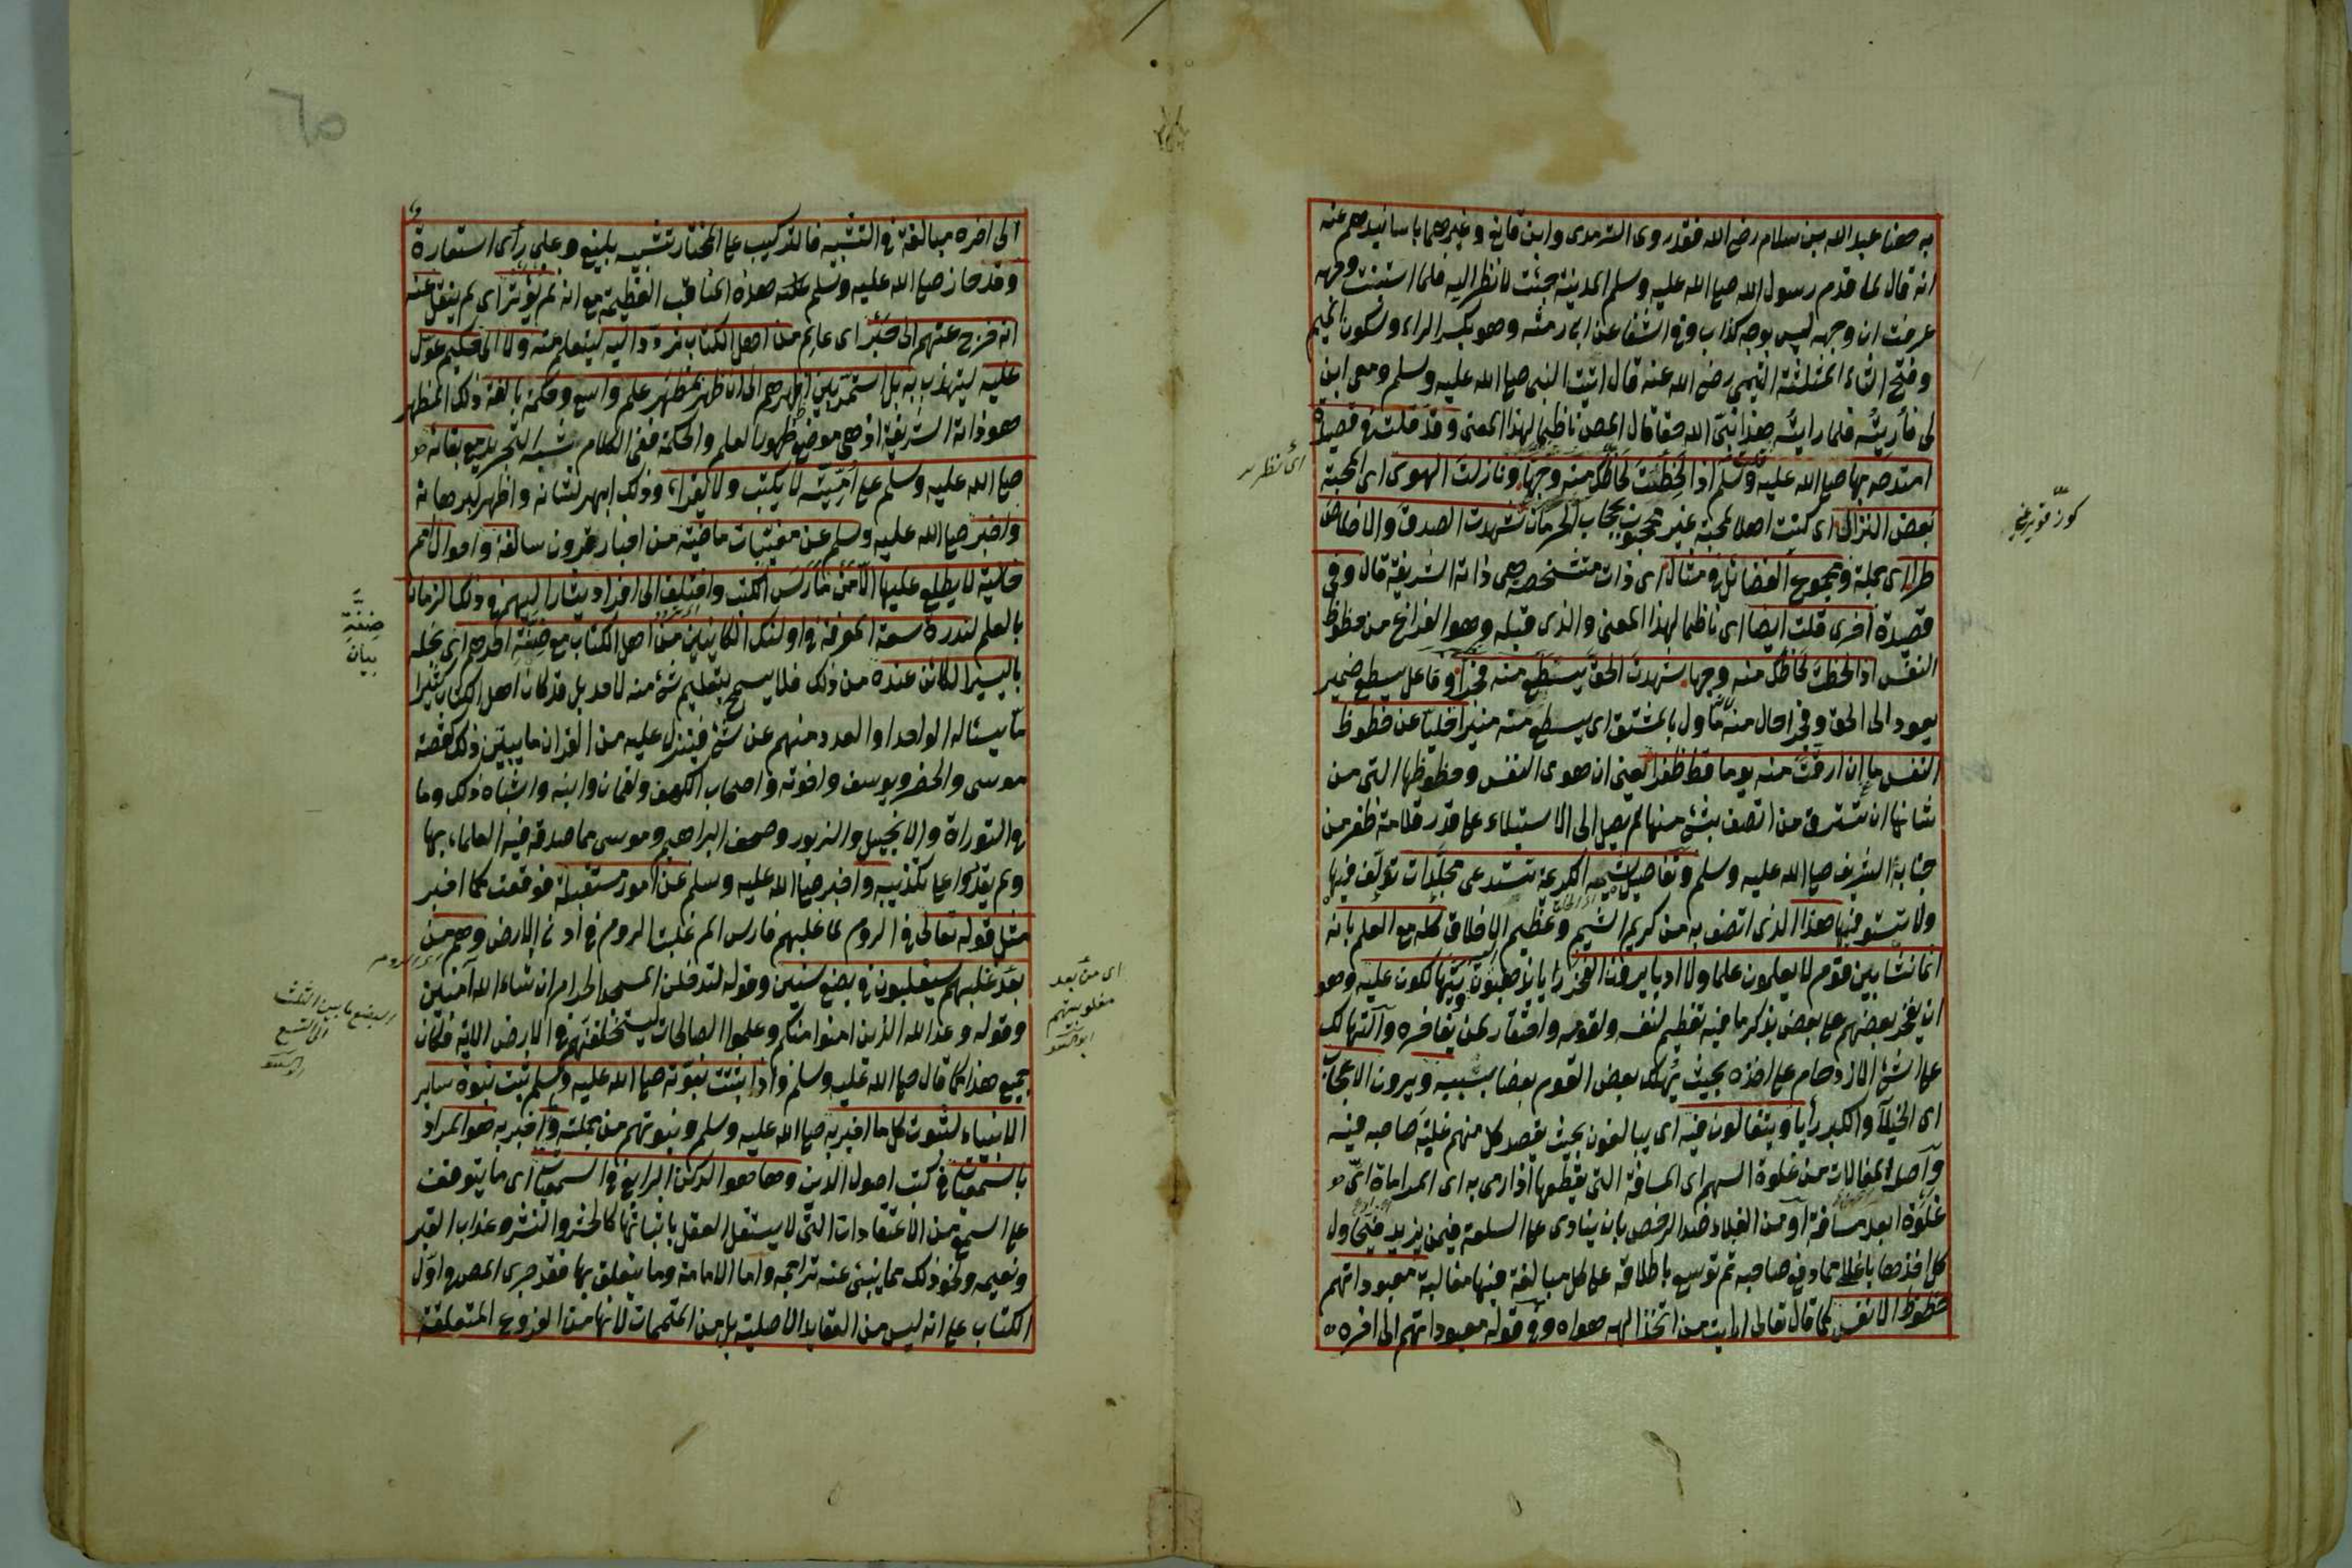 به هنا عبد الله بن سلام رضي الله فقد روى الترمدى وابن قانع وغيرهما باسانيدهم عنه
انه قال لما قدم رسول الله صلى الله عليه وسلم المدينة جئت لانظر اليه فلما استبنت وجهه
عرفت ان وجهه ليس بوجه كذاب وفى الشفا عن ابى رمثه وهو بكسر الراء وسكون الميم
وفتح الثاء المثلثة التيمى رضى الله عنه قال اتيت النبى صلى الله عليه وسلم ومعى ابن
لى فأريته فلما رايته هذا نبى الله حقا قال المص ناظما لهذا المعنى وقد قلت فى قصيدة
امتدحه بها صلى الله عليه وسلم اذا لحظت لحاظك منه وجها ونازلت الهوى اى المحبة
بعض النزال اى كنت اهلا لمحبة غير محجوب بحجاب الحرمان شهدت الصدق والاخلاص
طرا اى جملة ومجموع الفضائل فى مثال اى ذات متشخصة هى ذاته الشريفة قال وفى
قصيدة اخرى قلت ايضا اى ناظما لهذا المعنى والذى قبله وهو الفراغ من حظوظ
النفس اذا لحظت لحاظك منه وجها شهدت الحق يسطع منه فجرا وفاعل يسطع ضمير
يعود الى الحق وفجرا حال منه ماول بالمشتق اى يسطع منه منيرا خليا عن حظوظ
النفس ما ان ارقت منه يوما قط ظفرا يعنى ان هوى النفس وحظوظها التى من
شانها ان تسترق من اتصف بشئ منها لم يصل الى الاستيلاء على قدر قلامة ظفر من
جنابه الشريف صلى الله عليه وسلم وتفاصيل شيمه الكريمة تستدعى مجلدات تؤلف فيها
ولا تستوفيها هذا الذى اتصف به من كريم الشيم وعظيم الاخلاق كله مع العلم بانه
انما نشا بين قوم لا يعلمون علما ولا ادبا يرون الفخر رايا يذهبون ويتهالكون عليه وهو
ان يفخر بعضهم على بعض بذكر ما فيه تعظيم لنفسه ولقومه واحتقار لمن يفاخره والتهالك
على الشئ الازدحام على اخذه بحيث يهلك بعض القوم بعضا بسببه ويرون الاعجاب
اى الخيلآ والكبر رأيا ويتغالون فيه اى يبالغون بحيث يقصد كل منهم غلبة صاحبه فيه
واصل المغالات من غلوة السهم اى المسافة التى يقطعها اذا رمى به اى المراماة اى
غلوة ابعد مسافة او من الغلاء ضد الرخص بان ينادى على السلعة فيمن يزيد فيحاول
كل اخذها باغلى مما دفع صاحبه ثم توسع باطلاقه على كل مبالغة فيها مغالبة معبوداتهم
حظوظ الانفس كما قال تعالى ارايت من اتخذ الهه هواه وفى قوله معبوداتهم الى اخره
اى نظرت
الى اخره مبالغة فى التشبيه فالتركيب على المختار تشبيه بليغ وعلى رأى استعارة
وقد حاز صلى الله عليه وسلم هذه المناقب العظيمة مع انه لم يؤثر اى لم ينقل عنه
انه خرج عنهم الى حبر اى عالم من اهل الكتاب تردد اليه ليتعلم منه ولا الى حكيم عول
عليه ليتهذب به بل استمر بين اظهرهم الى ان ظهر بمظهر علم واسع وحكمة بالغة ذلك المظهر
هو ذاته الشريفة اذ هى موضع ظهور العلم والحكمة ففى الكلام شبه التجريد مع بقائه
صلى الله عليه وسلم على أميته لا يكتب ولا يقرا وذلك ابهر لشانه واظهر لبرهانه
واخبر صلى الله عليه وسلم عن مغيبات ماضية من اخبار قرون سالفة واحوال امم
خالية لا يطلع عليها الا من مارس الكتب واختلف الى افراد يشار اليهم فى ذلك الزمان
بالعلم لندرة سعة المعرفة فى اولئك الكاينين من اهل الكتاب مع ضنة احدهم اى بخله
باليسير الكائن عنده من ذلك فلا يسمح بتعليم شئ منه لاحد بل قد كان اهل الكتاب كثيرا
ما يسئاله الواحد او العدد منهم عن شئ فينزل عليه من القران ما يبين ذلك كقصة
موسى والخضر ويوسف واخوته واصحاب الكهف ولقمان وابنه واشباه ذلك وما
فى التوراة والانجيل والزبور وصحف ابراهيم وموسى مما صدقه فيه العلماء بها
ولم يقدروا على تكذيبه واخبر صلى الله عليه وسلم عن امور مستقبلة فوقعت كما اخبر
مثل قوله تعالى فى الروم لما غلبهم فارس الم غلبت الروم فى ادنى الارض وهم من
بعد غلبهم سيغلبون فى بضع سنين وقوله لتدخلن المسجد الحرام ان شاء الله آمنين
وقوله وعد الله الذين امنوا منكم وعملوا الصالحات ليستخلفنهم فى الارض الاية فكان
جميع هذا كما قال صلى الله عليه وسلم واذا ثبتت نبوته صلى الله عليه وسلم ثبت نبوة ساير
الانبياء لثبوت كل ما اخبر به صلى الله عليه وسلم ونبوتهم من جملته وما اخبر به هو المراد
بالسمعيات فى كتب اصول الدين وها هو الركن الرابع فى السمعيات اى ما يتوقف
على السمع من الاعتقادات التى لا يستقل العقل باثباتها كالحشر والنشر وعذاب القبر
ونعيمه ونحو ذلك مما ينبئ عنه تراجمه واما الامامة وما يتعلق بها فقد جرى المص اول
الكتاب على انه ليس من العقايد الاصلية بل من المتممات لانها من الفروع المتعلقة
ضنة
بيان
اى من بعد
مغلوبيتهم
ابو السعود
البضع ما بين الثلث
الى التسع
ابو السعود